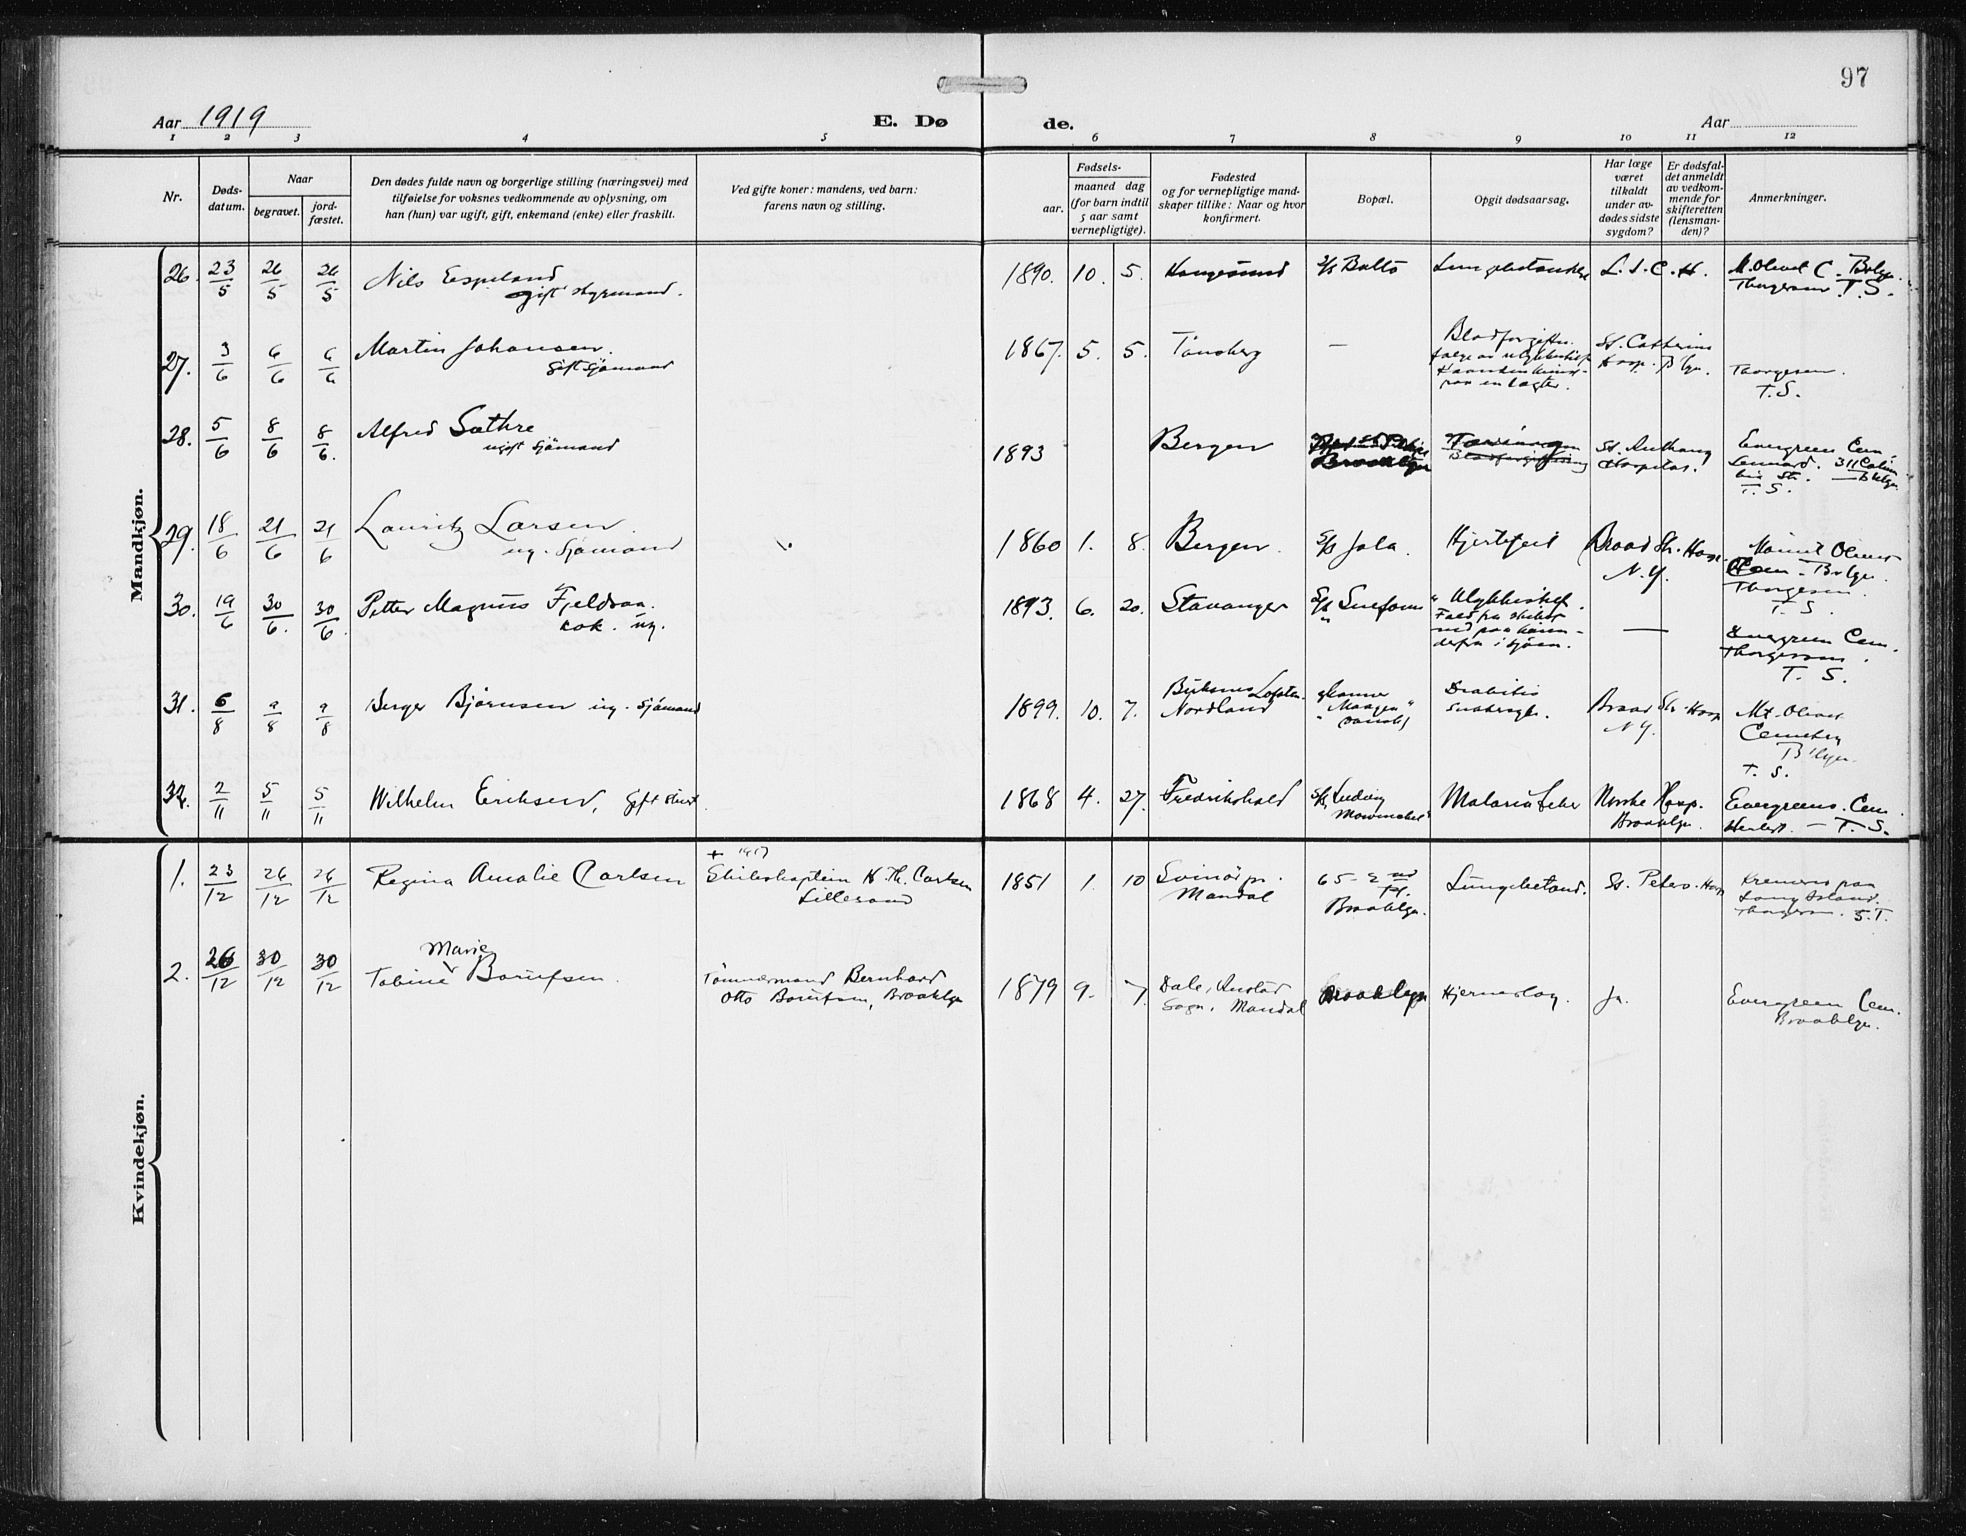 97
Aar 1919
E. Dø
de.
Aar
1 2 3 4 5 6 7 8 9 10 11 12
Nr.
Døds-
datum.
Naar
begravet.
jord-
fæstet.
Den dødes fulde navn og borgerlige stilling (næringsvei) med
tilføielse for voksnes vedkommende av oplysning, om
han (hun) var ugift, gift, enkemand (enke) eller fraskilt.
Ved gifte koner: mandens, ved barn:
farens navn og stilling.
Fødsels-
aar.
maaned dag
(for barn indtil
5 aar samt
vernepligtige).
Fødested
og for vernepligtige mand-
skaper tillike: Naar og hvor
konfirmert.
Bopæl.
Opgit dødsaarsag.
Har læge
været
tilkaldt
under av-
dødes sidste
sygdom?
Er dødsfal-
det anmeldt
av vedkom-
mende for
skifteretten
(lensman-
den)?
Anmerkninger.
Mandkjøn.
26. 23/5 26/5 26/5 Nils Espeland 1890. 10. 5. Haugesund S/S Balto L. I. C. H. M. Olivet C. Bklyn.
gift styrmand. Thorgersen T. S.
27. 3/6 6/6 6/6 Martin Johansen. 1867. 5. 5. Tönsberg — Blodforgiftn. St. Catherins
gift sjömand Hosp. Bklyn. Thorgersen.
T. S.
28. 5/6 8/6 8/6. Alfred Sæthre 1893 Bergen Brooklyn Blodforgiftning St. Anthony Evergreen Cem.
ugift sjömand Hospital. Lennard. 311
Str. Bklyn.
T. S.
29. 18/6 21/6 21/6 Lauritz Larsen. 1860 1. 8. Bergen. S/S Jola. Hjertefeil Broad Str. Hosp. Mount Olivet
ug. Sjömand N.Y. Cem. Bklyn.
Thorgersen.
T. S.
30. 19/6 30/6. 30/6. Petter Magnus Fjeldsaa. 1893. 6. 20. Stavanger S/S Snefonn Ulykkestilf. —
kok. ug. Fald fra skibet
ned paa
i sjöen.
Evergreen Cem.
Thorgersen.
T. S.
31. 6/8 9/8 9/8 Berger Bjørnsen ug. sjömand 1899. 10. 7. Buksnes Lofoten. Nordland Broad Str. Hosp N.Y. Mt. Olivet
Cemetery
B'klyn.
T. S.
32. 2/11 5/11 5/11 Wilhelm Eriksen, gift 1868 4. 27. Fredrikshald S/S Ludvig Mowinckel Malaria feber Norske Hosp. Brooklyn. Evergreens. Cem.
— T. S.
Kvindekjøn.
1. 23/12 26/12 26/12 Regina Amalie Carlsen + 1917
Skibskaptein H. Th. Carlsen
Lillesand
1851 1. 10 Svinör pr. Mandal 65 - 2nd Pl. Brooklyn. Lungebetænd. St. Peters. Hosp Kremeres paa
Long Island.
Thorgersen. S. T.
2. 26/12 30/12 30/12 Tobine Marie Borufsen. Tömmermand Bernhard
Otto Borufsen, Brooklyn
1879 9. 7. Dale, Sogn, Mandal Brooklyn Hjerneslag. Ja. Evergreen Cem.
Brooklyn.